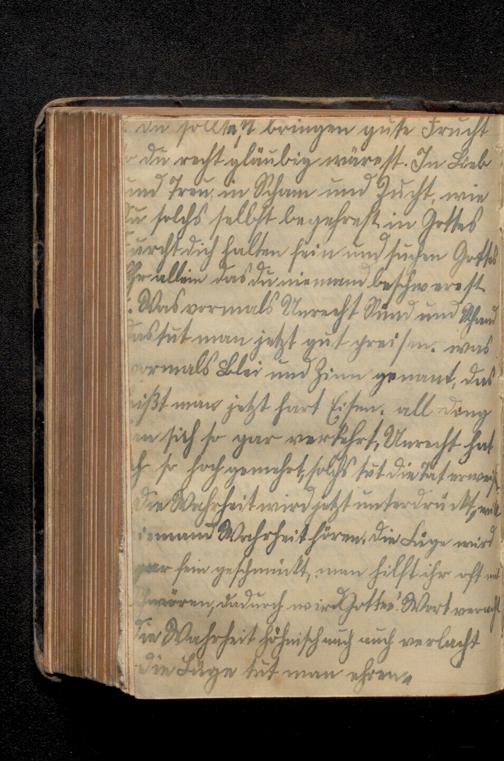 du solltest bringen gute Frucht
du recht gläubig wärest. In Lieb
und Treu, in Scham und Zucht, wie
du solchs selbst begehrest in Gottes
Furcht dich halten fein und suchen Gottes
Ehr allein das du niemand beschwerest
. Was vormals Unrecht Sünd und Schand
das tut man jetzt gut preisen. was
vormals Blei und Zinn genant, das
heißt man jetzt hart Eisen. all Ding
an sich so gar verkehrt, Unrecht hat
ich so hoch gemehrt, solchs tut die Tat erweis
Die Wahrheit wird jetzt unterdrückt, will
iemand Wahrheit hören. die Lüge wird
gar fein geschmückt, man hilft ihr oft mit
schwören, dadurch wird Gottes Wort veracht
die Wahrheit höhnisch auch verlacht
die Lüge tut man ehren.